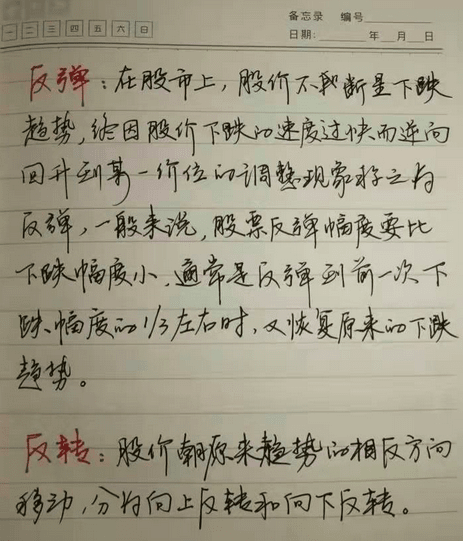 备忘录 编号
一 二 三 四 五 六 日
日期: 年 月 日
反弹：在股市上，股价不断呈下跌
趋势，终因股价下跌的速度过快而逆向
回升到某一价位的调整现象称之为
反弹，一般来说，股票反弹幅度要比
下跌幅度小，通常是反弹到前一次下
跌幅度的1/3左右时，又恢复原来的下跌
趋势。
反转：股价朝原来趋势的相反方向
移动，分为向上反转和向下反转。